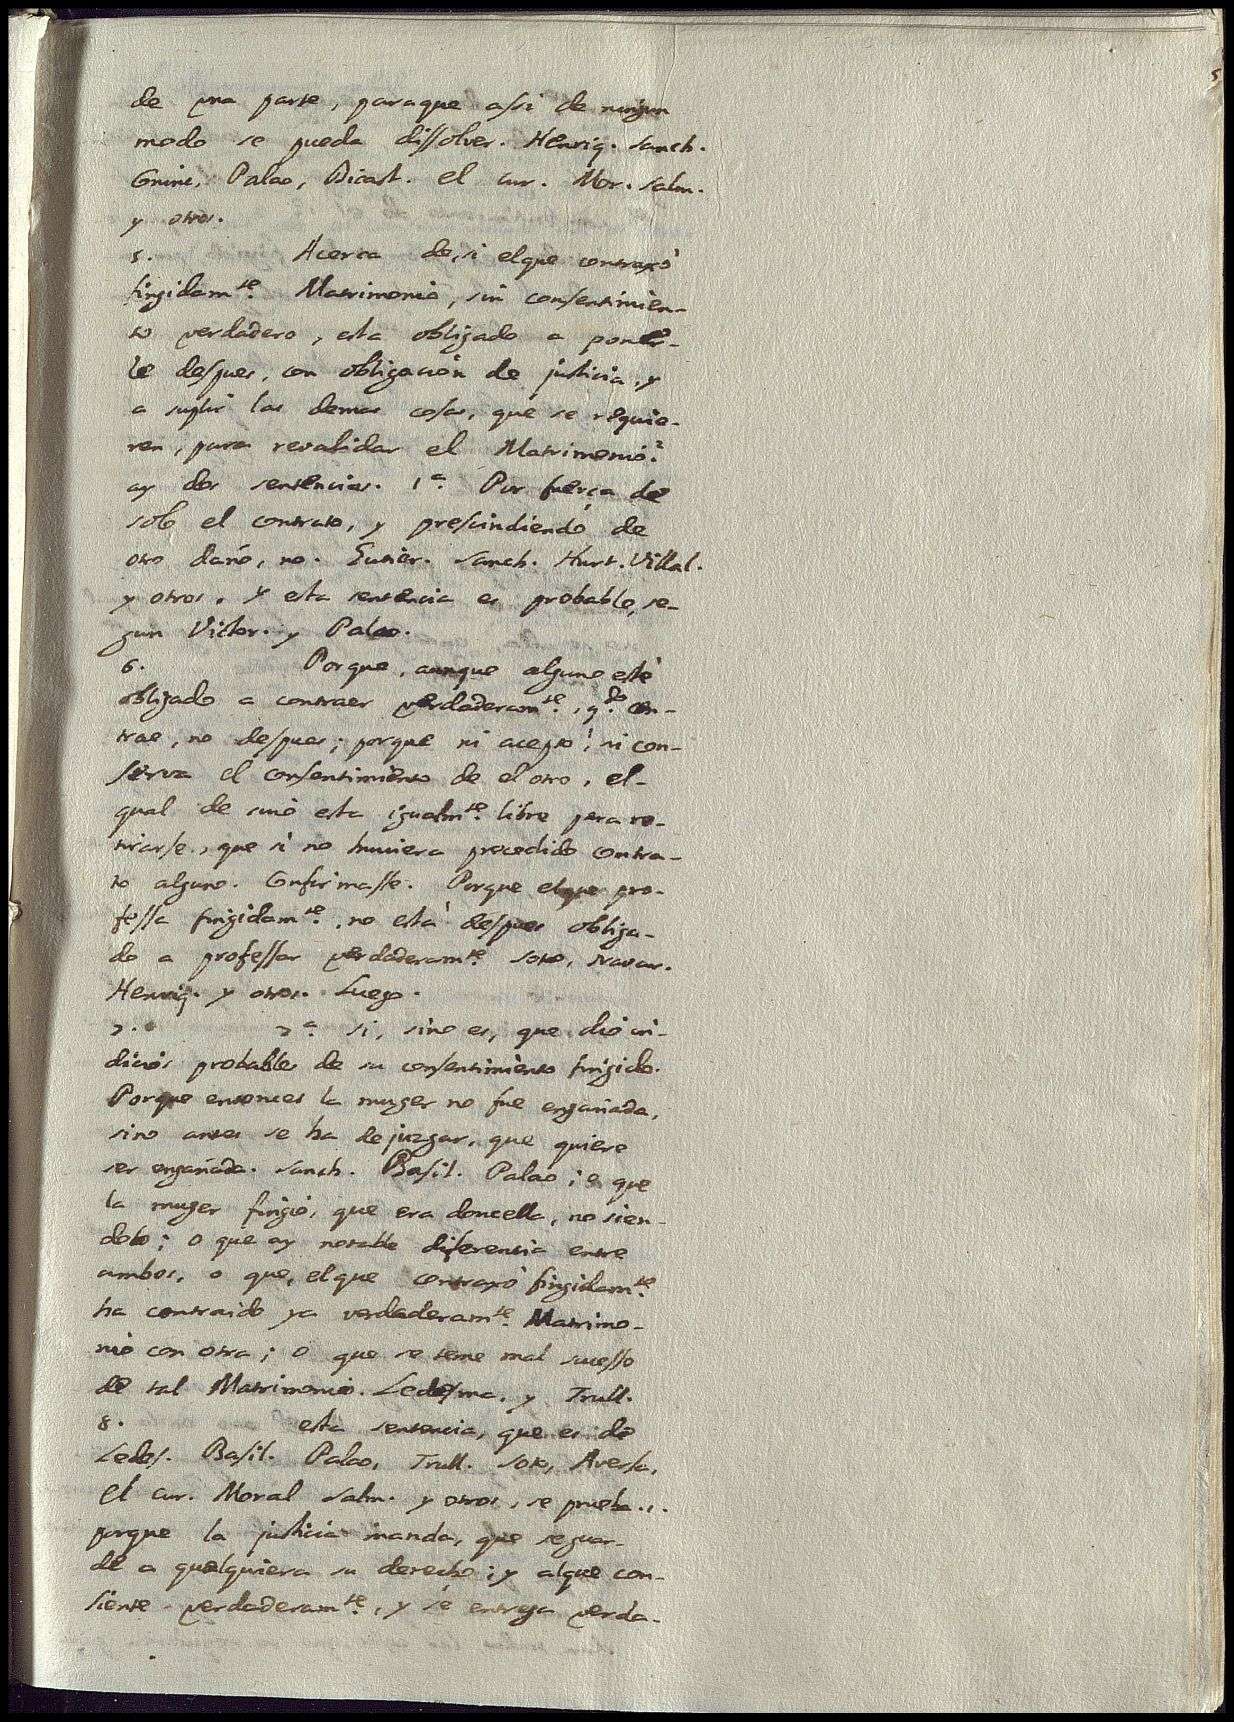 de vna parte, paraque assi de ningun
modo se pueda dissolver. Henriq. Sanch.
Coninc, Palao, Dicast. el cur. Mor. Salm.
y otros.
5. Acerca de, si elque contraxò
fingidam.te Matrimonio, sin consentimien-
to verdadero, esta obligado a poner-
le despues, con obligacion de justicia, y
a suplir las demas cosas, que se requie-
ren, para revalidar el Matrimonio?
ay dos sentencias. 1.a Por fuerça de
solo el contrato, y prescindiendo de
otro daño, no. Gutier. Sanch. Hurt. Villal.
y otros. Y esta sentencia es probable, se-
gun Victor. y Palao.
6. Porque, aunque alguno estè
obligado a contraer verdaderam.te, q.do con-
trae, no despues; porque ni aceptò, ni con-
serva el consentimiento de el otro, el-
qual de suio esta igualm.te libre para re-
tirarse, que si no huviera precedido contra-
to alguno. Confirmasse. Porque elque pro-
fessa fingidam.te, no està despues obliga-
do a professar verdaderam.te Soto, Navar.
Henriq. y otros. Luego.
7. 2.a si, sino es, que diò in-
dicios probables de su consentimiento fingido.
Porque entonces la muger no fue engañada,
sino antes se ha de juzgar, que quiere
ser engañada. Sanch. Basil. Palao; o que
la muger fingiò, que era doncella, no sien-
dolo; o que ay notable diferencia entre
ambos, o que, elque contraxò fingidam.te
ha contraido ya verdaderam.te Matrimo-
nio con otra; o que se teme mal sucesso
de tal Matrimonio. Ledesma. y Trull.
8. esta sentencia, que es de
Ledes. Basil. Palao, Trull. Soto, Aversa,
el cur. Moral Salm. y otros, se prueba. 1.
porque la justicia manda, que se guar-
de a qualquiera su derecho; y alque con-
siente verdaderam.te, y se entrega verda-
5